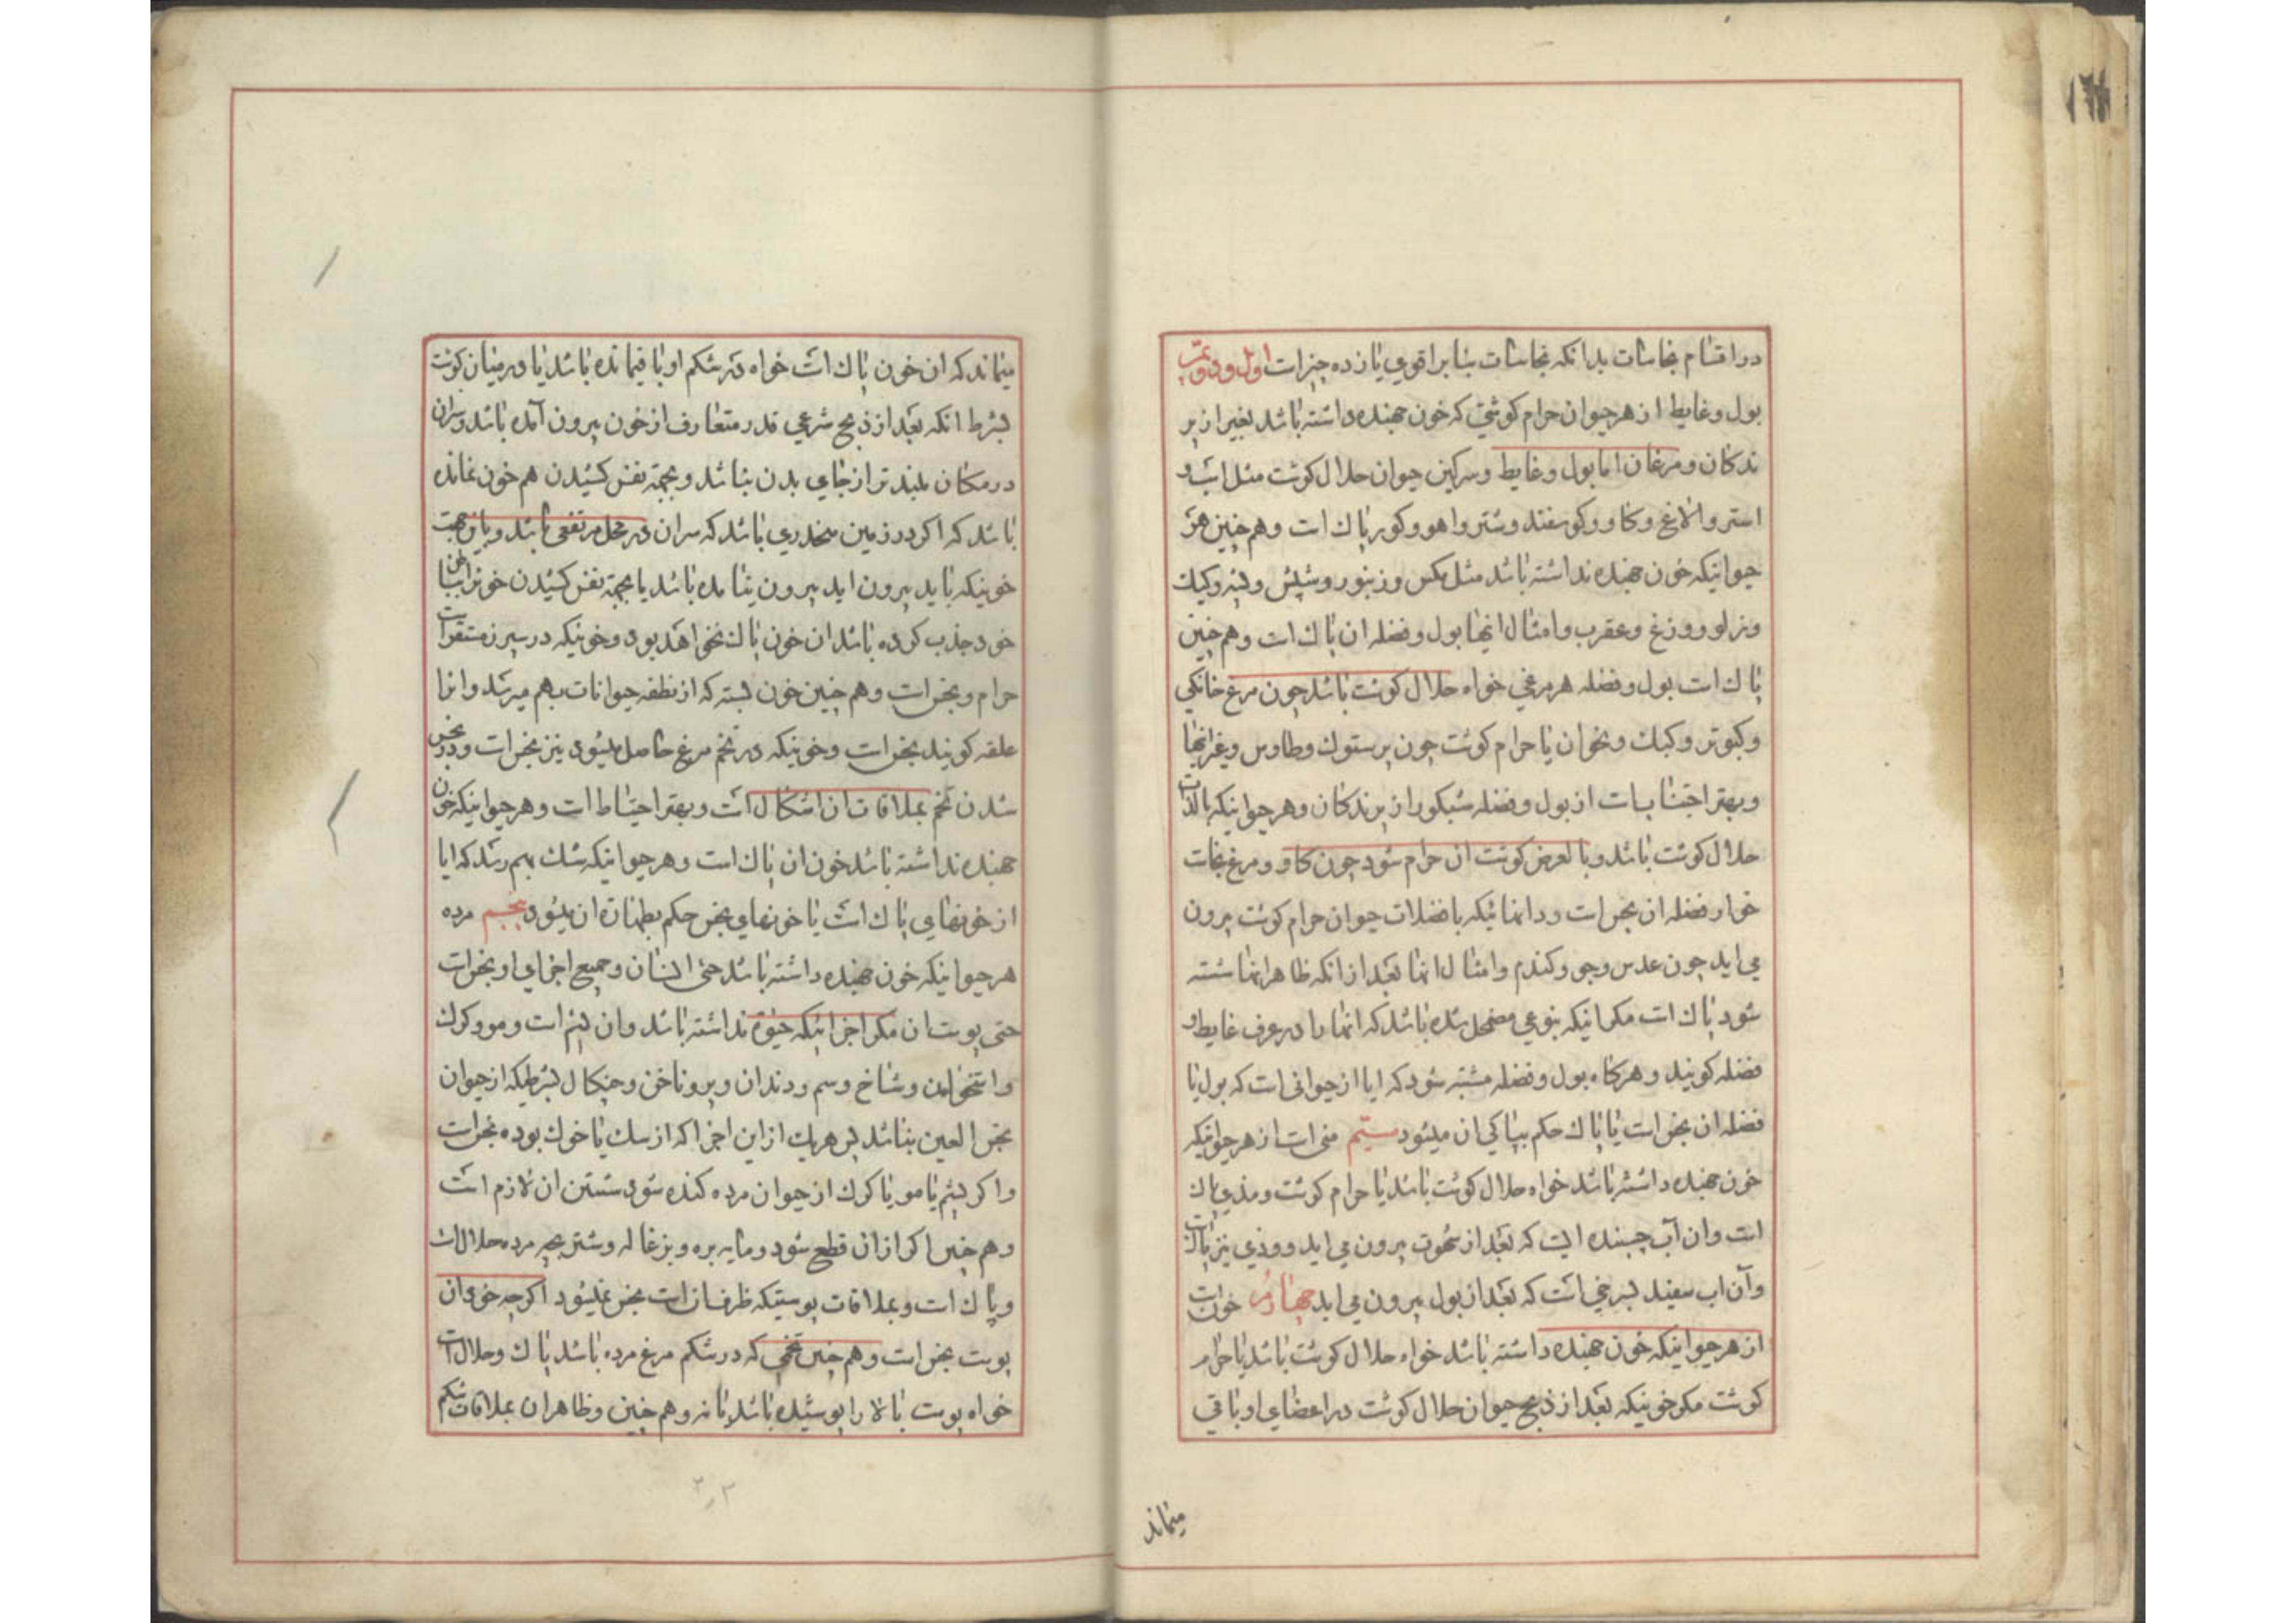 در اقسام نجاسات بدانکه نجاسات بنا بر اقوی یازده چیز است اول و دویمت
بول و غایط از هر حیوان حرام کوشتی که خون جهنده داشته باشد بغیر از پر
ندکان و مرغان اما بول و غایط و سرکین حیوان حلال کوشت مثل اسب و
استر و الاغ و کاو و کوسفند و شتر و اهو و کور پاك است و هم چنین هر
حیوانیکه خون جهنده نداشته باشد مثل مکس و زنبور و شپش و پشه و کیك
و زلو و وزغ و عقرب و امثال انها بول و فضله ان پاك است و هم چنین
پاك است بول و فضله هر مرغی خواه حلال کوشت باشد چون مرغ خانکی
و کبوتر و کبك و نحو ان یا حرام کوشت چون پرستوك و طاوس و غیر انها
و بهتر اجتناب است از بول و فضله شبکور از پرندکان و هر حیوانیکه بالذات
حلال کوشت باشد و بالعرض کوشت ان حرام شود چون کاو و مرغ نجاست
خوار فضله ان نجس است و دانهائیکه با فضلات حیوان حرام کوشت بیرون
می اید چون عدس و جو و کندم و امثال انها بعد از انکه ظاهر انها شسته
شود پاك است مکر انیکه بنوعی مضمحل شده باشد که انها را در عرف غایط و
فضله کویند و هرکاه بول و فضله مشتبه شود که ایا از حیوانی است که بول یا
فضله ان نجس است یا پاك حکم بپاکی ان میشود سیّم منی است از هر حیوانیکه
خون جهنده داشته باشد خواه حلال کوشت باشد یا حرام کوشت و مذی پاك
است و ان آب چسبنده ایست که بعد از شهوت بیرون می اید و وذی نیز پاك است
و آن اب سفید لبرخی است که بعد از بول بیرون می اید چهارم خون است
از هر حیوانیکه خون جهنده داشته باشد خواه حلال کوشت باشد یا حرام
کوشت مکر خونیکه بعد از ذبح حیوان حلال کوشت در اعضای او باقی
میماند
میماند که ان خون پاك است خواه در شکم او باقیمانده باشد یا در میان کوشت
بشرط انکه بعد از ذبح شرعی قدر متعارف از خون بیرون آمده باشد و سر ان
در مکان بلند تر از جای بدن نباشد و بجهة نفس کشیدن هم خون نمانده
باشد که اکر در زمین منحدری باشد که سر ان در محل مرتفعی باشد و باین جهت
خونیکه باید بیرون اید بیرون نیامده باشد یا بجهة نفس کشیدن خونرا بباطن
خود جذب کرده باشد ان خون پاك نخواهد بود و خونیکه در سپرز مستقر است
حرام و نجس است و هم چنین خون بسته که از نطفه حیوانات بهم میرسد و انرا
علقه کویند نجس است و خونیکه در تخم مرغ حاصل میشود نیز نجس است و در نجس
شدن تخم بملاقات ان اشکال است و بهتر احتیاط است و هر حیوانیکه خون
جهنده نداشته باشد خون ان پاك است و هر حیوانیکه شك بهم رسد که ایا
از خونهای پاك است یا خونهای نجس حکم بطهارة ان میشود پنجم مرده
هر حیوانیکه خون جهنده داشته باشد حتی انسان و جمیع اجزای او نجس است
حتی پوست ان مکر اجزائیکه حیوة نداشته باشد و ان پشم است و مو و کرك
و استخوان و شاخ و سم و دندان و پر و ناخن و چنکال بشرطیکه از حیوان
نجس العین نباشد پس هر یك از این اجزا که از سك یا خوك بوده نجس است
و اکر پشم یا مو یا کرك از حیوان مرده کنده شود شستن ان لازم است
و هم چنین اکر از ان قطع شود و مایه بره و بزغاله و شتر بچه مرده حلال است
و پاك است و بملاقات پوستیکه ظرف ان است نجس نمیشود اکرچه خود ان
پوست نجس است و هم چنین تخمی که در شکم مرغ مرده باشد پاك و حلال است
خواه پوست بالا را پوشیده باشد یا نه و هم چنین و ظاهر ان بملاقات شکم